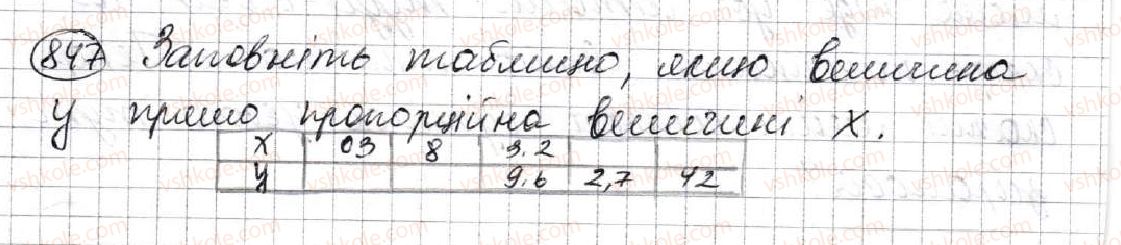 847 Заповніть таблицю, якщо величина
у прямо пропорційна величині х.
х 03 8 3.2
у 9.6 2,7 42